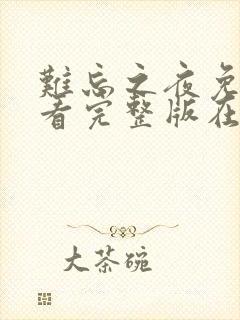 難忘之夜免
看完整版在
大茶碗